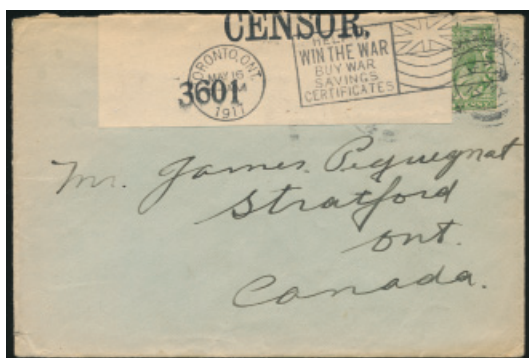 CENSOR,
TORONTO, ONT.
MAY 16
3601
1917
HELP
WIN THE WAR
BUY WAR
SAVINGS
CERTIFICATES
Mr. James Pequegnat
Stratford
Ont.
Canada.